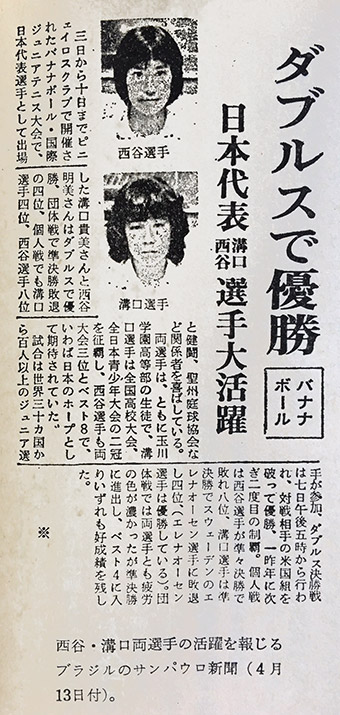 ダブルスで優勝
バナナ
ボール
日本代表 溝口 西谷 選手大活躍
西谷選手
溝口選手
三日から十日までピニ
ェイロスクラブで開催さ
れたバナナボール・国際
ジュニアテニス大会で、
日本代表選手として出場
した溝口貴美さんと西谷
明美さんはダブルスで優
勝、団体戦で準決勝敗退
の四位、個人戦でも溝口
選手四位、西谷選手八位
と健闘、聖州庭球協会な
ど関係者を喜ばしている。
両選手は、ともに玉川
学園高等部の生徒で、溝
口選手は全国高校大会、
全日本青少年大会の二冠
を征覇し、西谷選手も両
大会三位とベスト8で、
いわば日本のホープとし
て期待されていた。
試合は世界三十カ国か
ら百人以上のジュニア選
手が参加、ダブルス決勝戦
は七日午後五時から行わ
れ、対戦相手の米国組を
破って優勝、一昨年に次
ぎ二度目の制覇。個人戦
は西谷選手が準々決勝で
敗れ八位、溝口選手は準
決勝でスウェーデンのエ
レナオーセン選手に敗退
し四位(エレナオーセン
選手は優勝している)。団
体戦では両選手とも疲労
の色が濃かったが準決勝
に進出し、ベスト4に入
りいずれも好成績を残し
た。
※
西谷・溝口両選手の活躍を報じる
ブラジルのサンパウロ新聞(4月
13日付)。